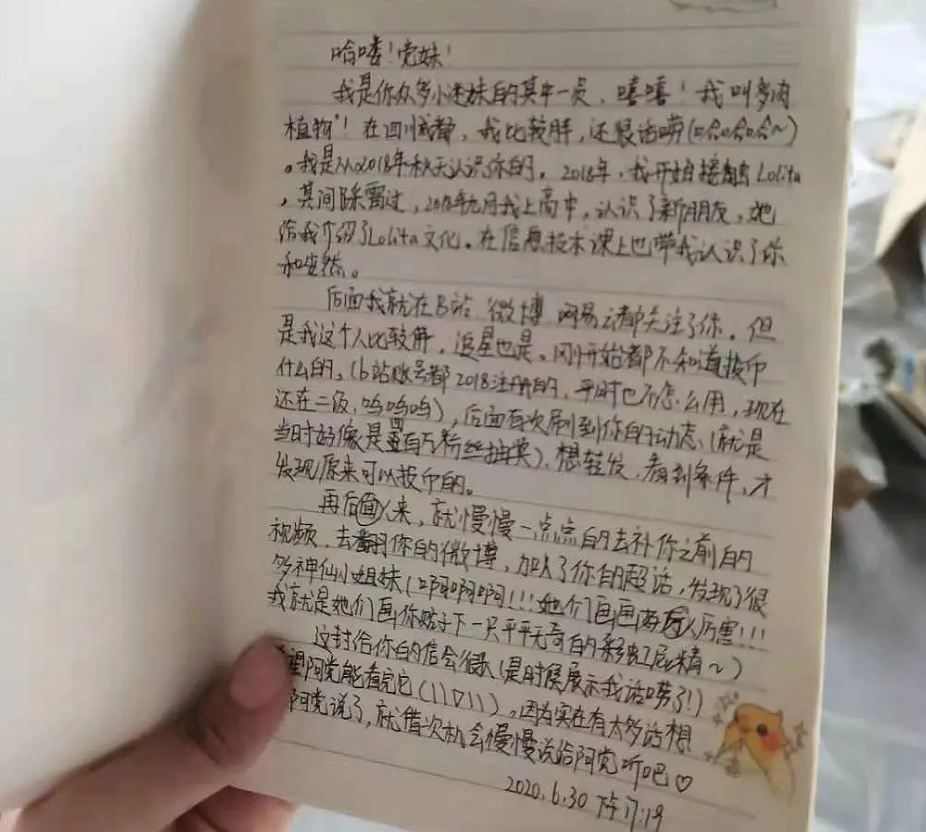 哈喽！党妹！
我是你众多小迷妹的其中一员，嘻嘻！我叫"多肉
植物"！在四川成都，我比较胖，还很话唠(哈哈哈~)
。我是从2018年秋天认识你的。2018年，我开始接触Lolita
，其间踩雷过，2018年九月我上高中，认识了新朋友，她
给我介绍了Lolita文化。在信息技术课上也带我认识了你
和安然。
后面我就在B站 微博 网易云都关注了你。但
是我这个人比较胖，追星也是。刚开始都不知道投币
什么的。(b站账号都2018注册的，平时也不怎么用，现在
还在二级，呜呜呜)，后面有次刷到你的动态、(就是
当时好像是置百万粉丝抽奖)，想转发，看到条件，才
发现原来可以投币的。
再后面来，就慢慢一点点的去补你之前的
视频，去翻你的微博，加入了你的超话，发现了很
多神仙小姐妹(啊啊啊啊!!!她们画画好厉害!!!
我就是她们画你帖子下一只平平无奇的彩虹屁精~)
这封给你的信会很长(是时候展示我话唠了!)
望阿党能看完它(\\▽\\)，因为实在有太多话想
阿党说了，就借次机会慢慢说给阿党听吧♡
2020.6.30 下午17:19